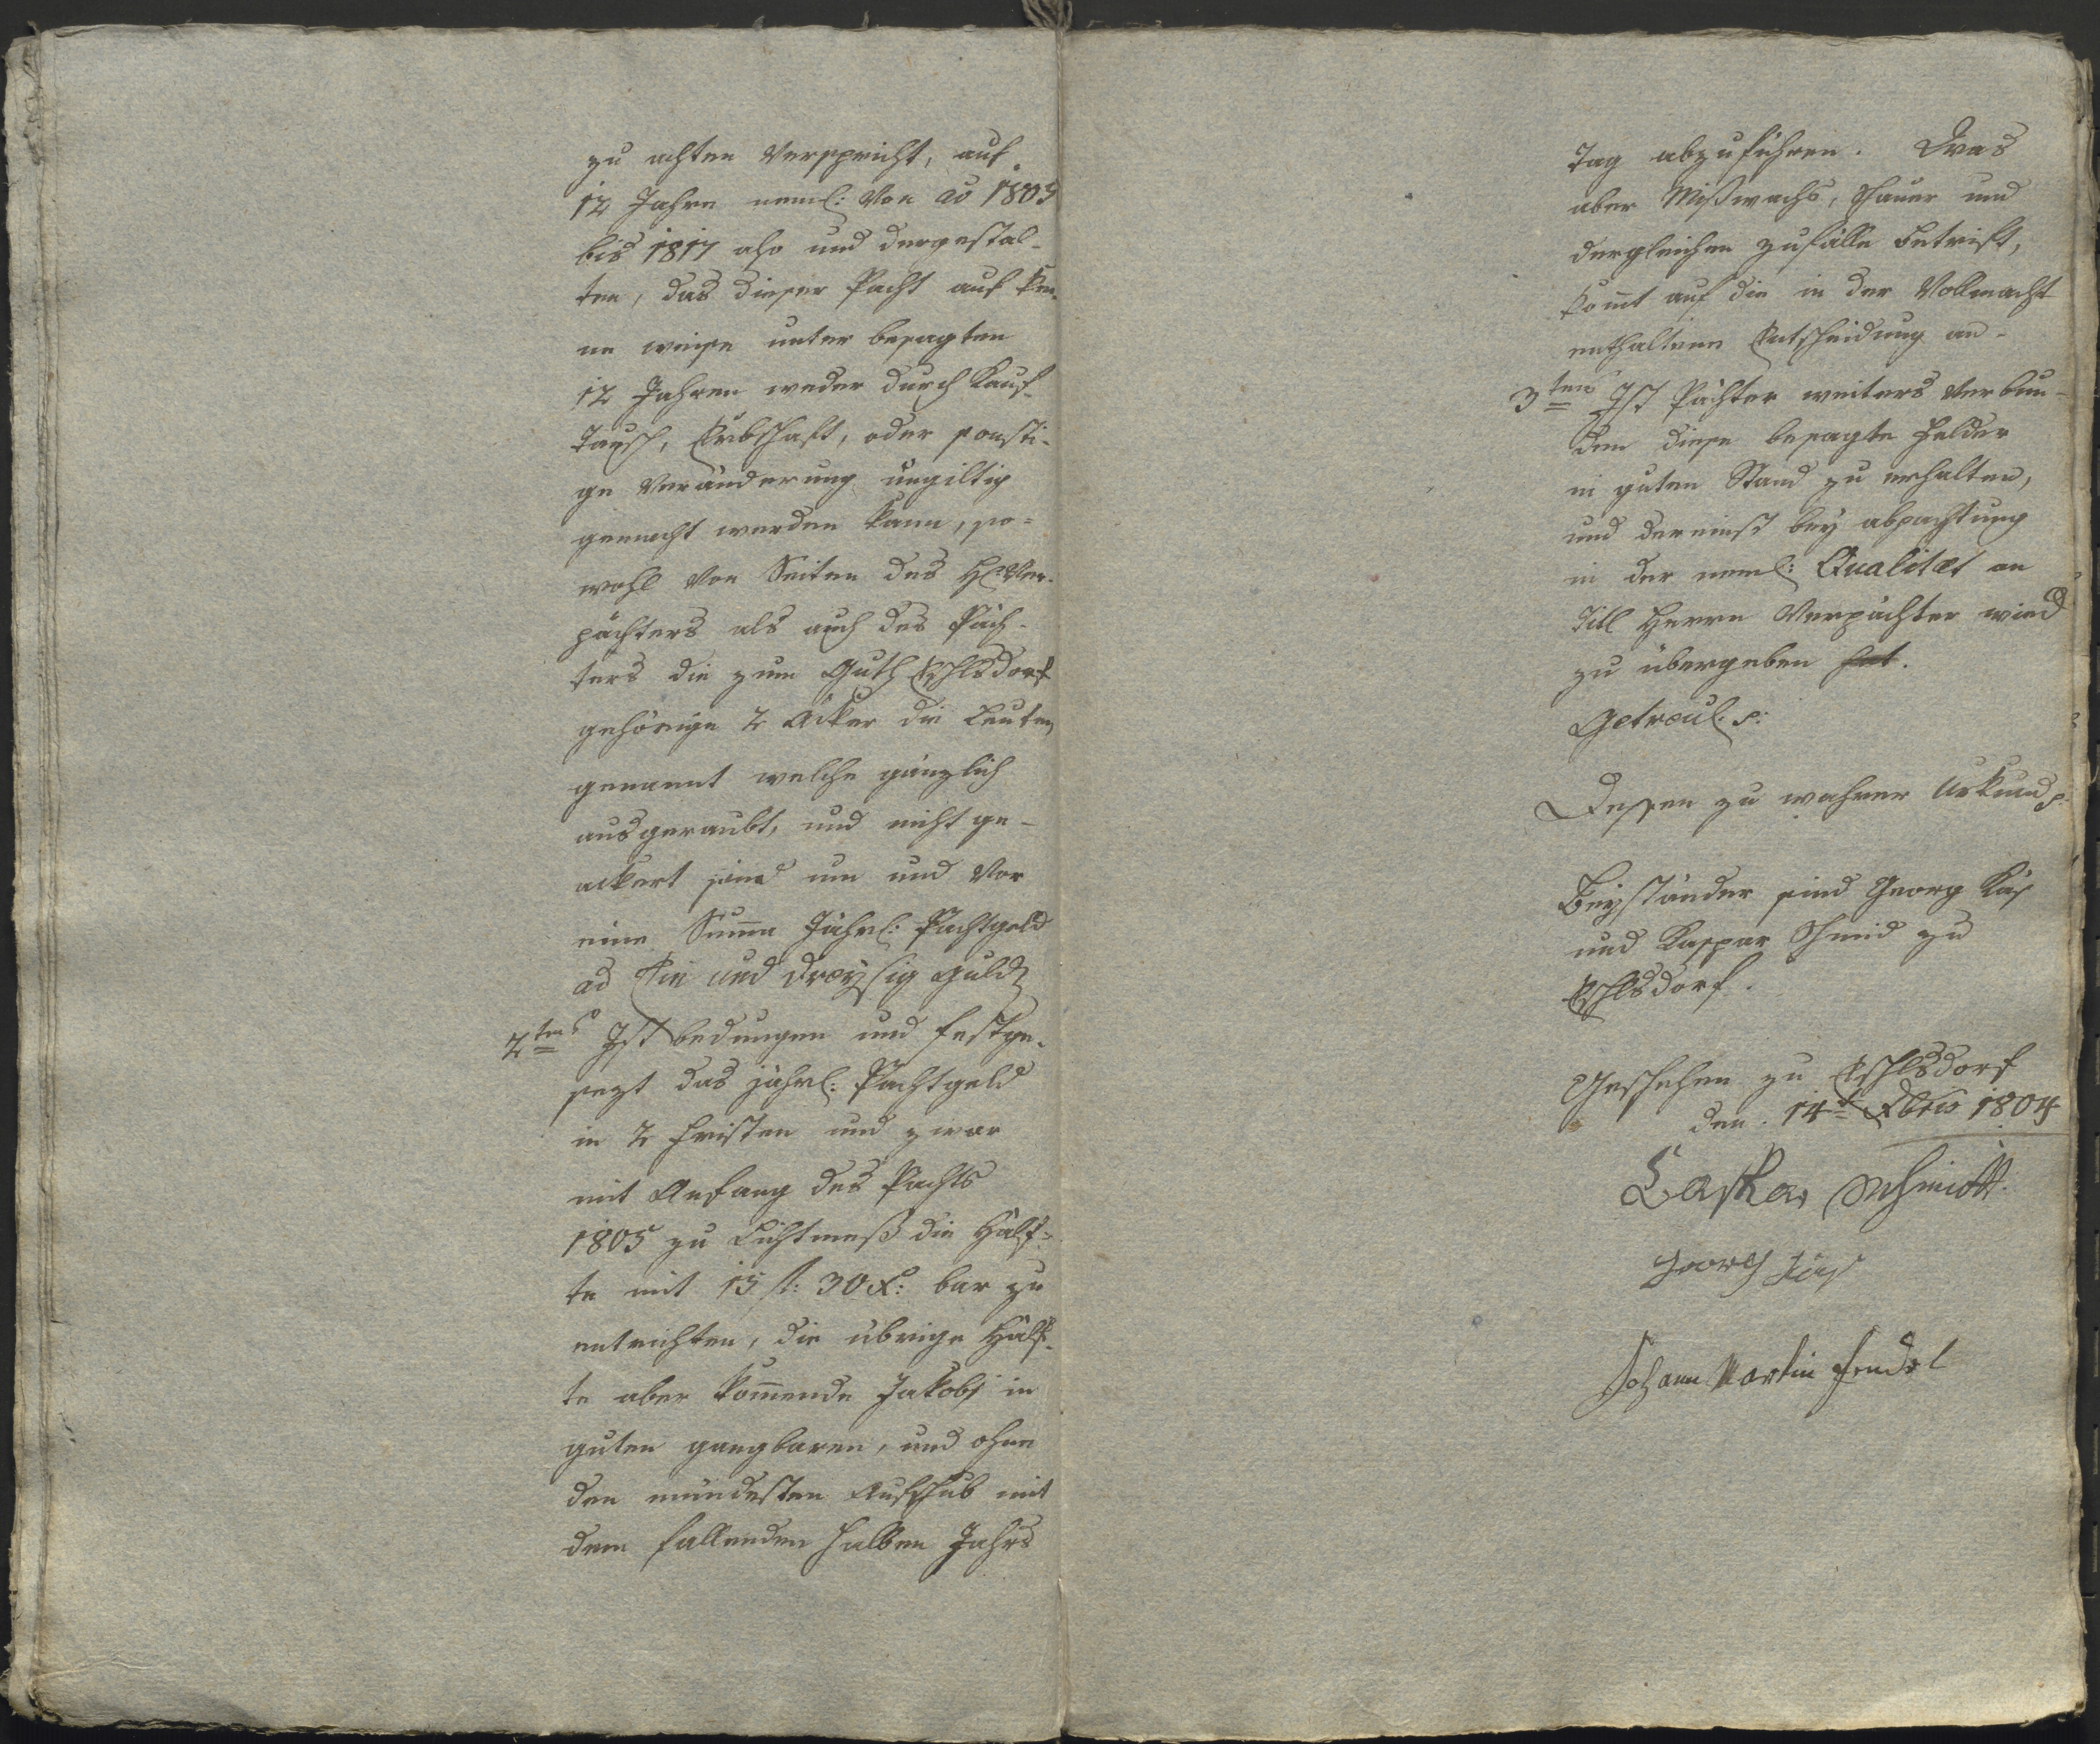 zu achten verspricht, auf
12 Jahre neml: von ao 1805
bis 1817 also und dergestal-
ten, das dieser Pacht auf kei-
ne weise unter besagten
12 Jahren weder durch Kauf
Tausch, Erbschaft, oder sonsti-
ge Veränderung ungiltig
gemacht werden kann, so=
wohl von Seiten des H: Ver-
pächters als auch des Päch-
ters die zum Guth Eschlsdorf
gehörige 2 Äcker die Leuten
genannt welche gänzlich
ausgeraubt, und nicht ge-
ackert sind um und vor
eine Suma Jährl: Pachtgeld
ad Ein und dreyssig Guld
2tens Ist bedungen und festge-
sezt das jährl: Pachtgeld
in 2 Fristen und zwar
mit Anfang des Pachts
1805 zu Lichtmeß die Hälf=
te mit 15 fl: 30 x: bar zu
entrichten, die übrige Hälf-
te aber komende Jakobi in
guten gangbaren, und ohne
den mindesten Aufschub mit
dem fallenden halben Jahrs
Tag abzuführen. Was
aber Mißwachs, Schauer und
dergleichen zufälle betrift,
komt auf die in der Vollmacht
enthaltene Entscheidung an.
3tens Ist Pächter weiters verbun-
den diese besagte Felder
in guten Stand zu erhalten,
und dereinst bey abpachtung
in der neml: Qualitæt an
Titl Herrn Verpächter wied
zu übergeben hat.
Getreul. p:
Dessen zu wahrer Urkund p:
Beyständer sind Georg Käs
und Kaspar Schmid zu
Eschlsdorf.
Geschehen zu Eschlsdorf
den 14t Xbris 1804
Caspar Schmidt
Georg Käs
Johann Martin Fendel